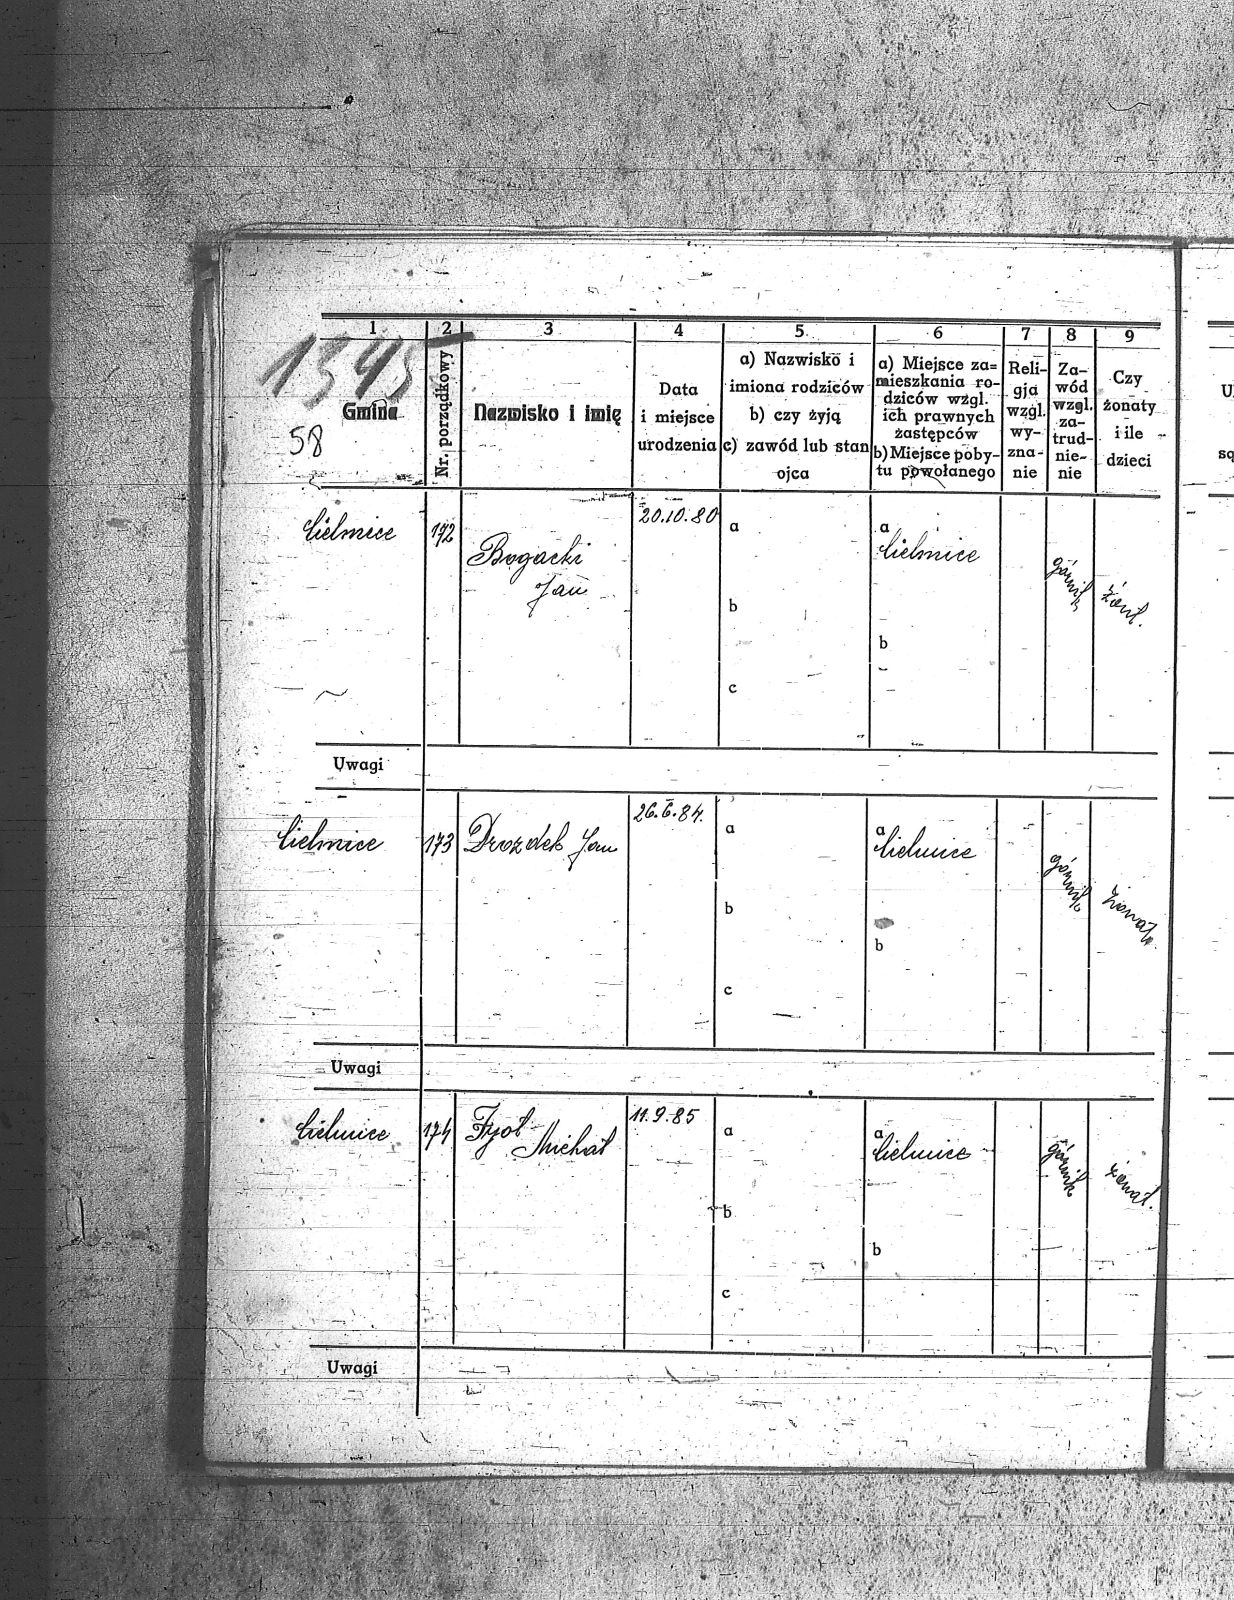 1 2 3 4 5 6 7 8 9
1345
58
Gmina
Nr. porządkowy
Nazwisko i imię
Data
i miejsce
urodzenia
a) Nazwisko i
imiona rodziców
b) czy żyją
c) zawód lub stan
ojca
a) Miejsce za=
mieszkania ro-
dziców wzgl.
ich prawnych
zastępców
b) Miejsce poby-
tu powołanego
Reli-
gja
wzgl.
wy-
zna-
nie
Za-
wód
wzgl.
za-
trud-
nie-
nie
Czy
żonaty
i ile
dzieci
Cielmice 172 Bogacki
Jan
20.10.80
a
b
c
a
Cielmice
b
górnik
żont.
Uwagi
Cielmice 173 Drozdek Jan
26.6.84.
a
b
c
a
Cielmice
b
górnik
żonat.
Uwagi
Cielmice 174 Fyol
Michał
11.9.85
a
b
c
a
Cielmice
b
górnik
żonat.
Uwagi